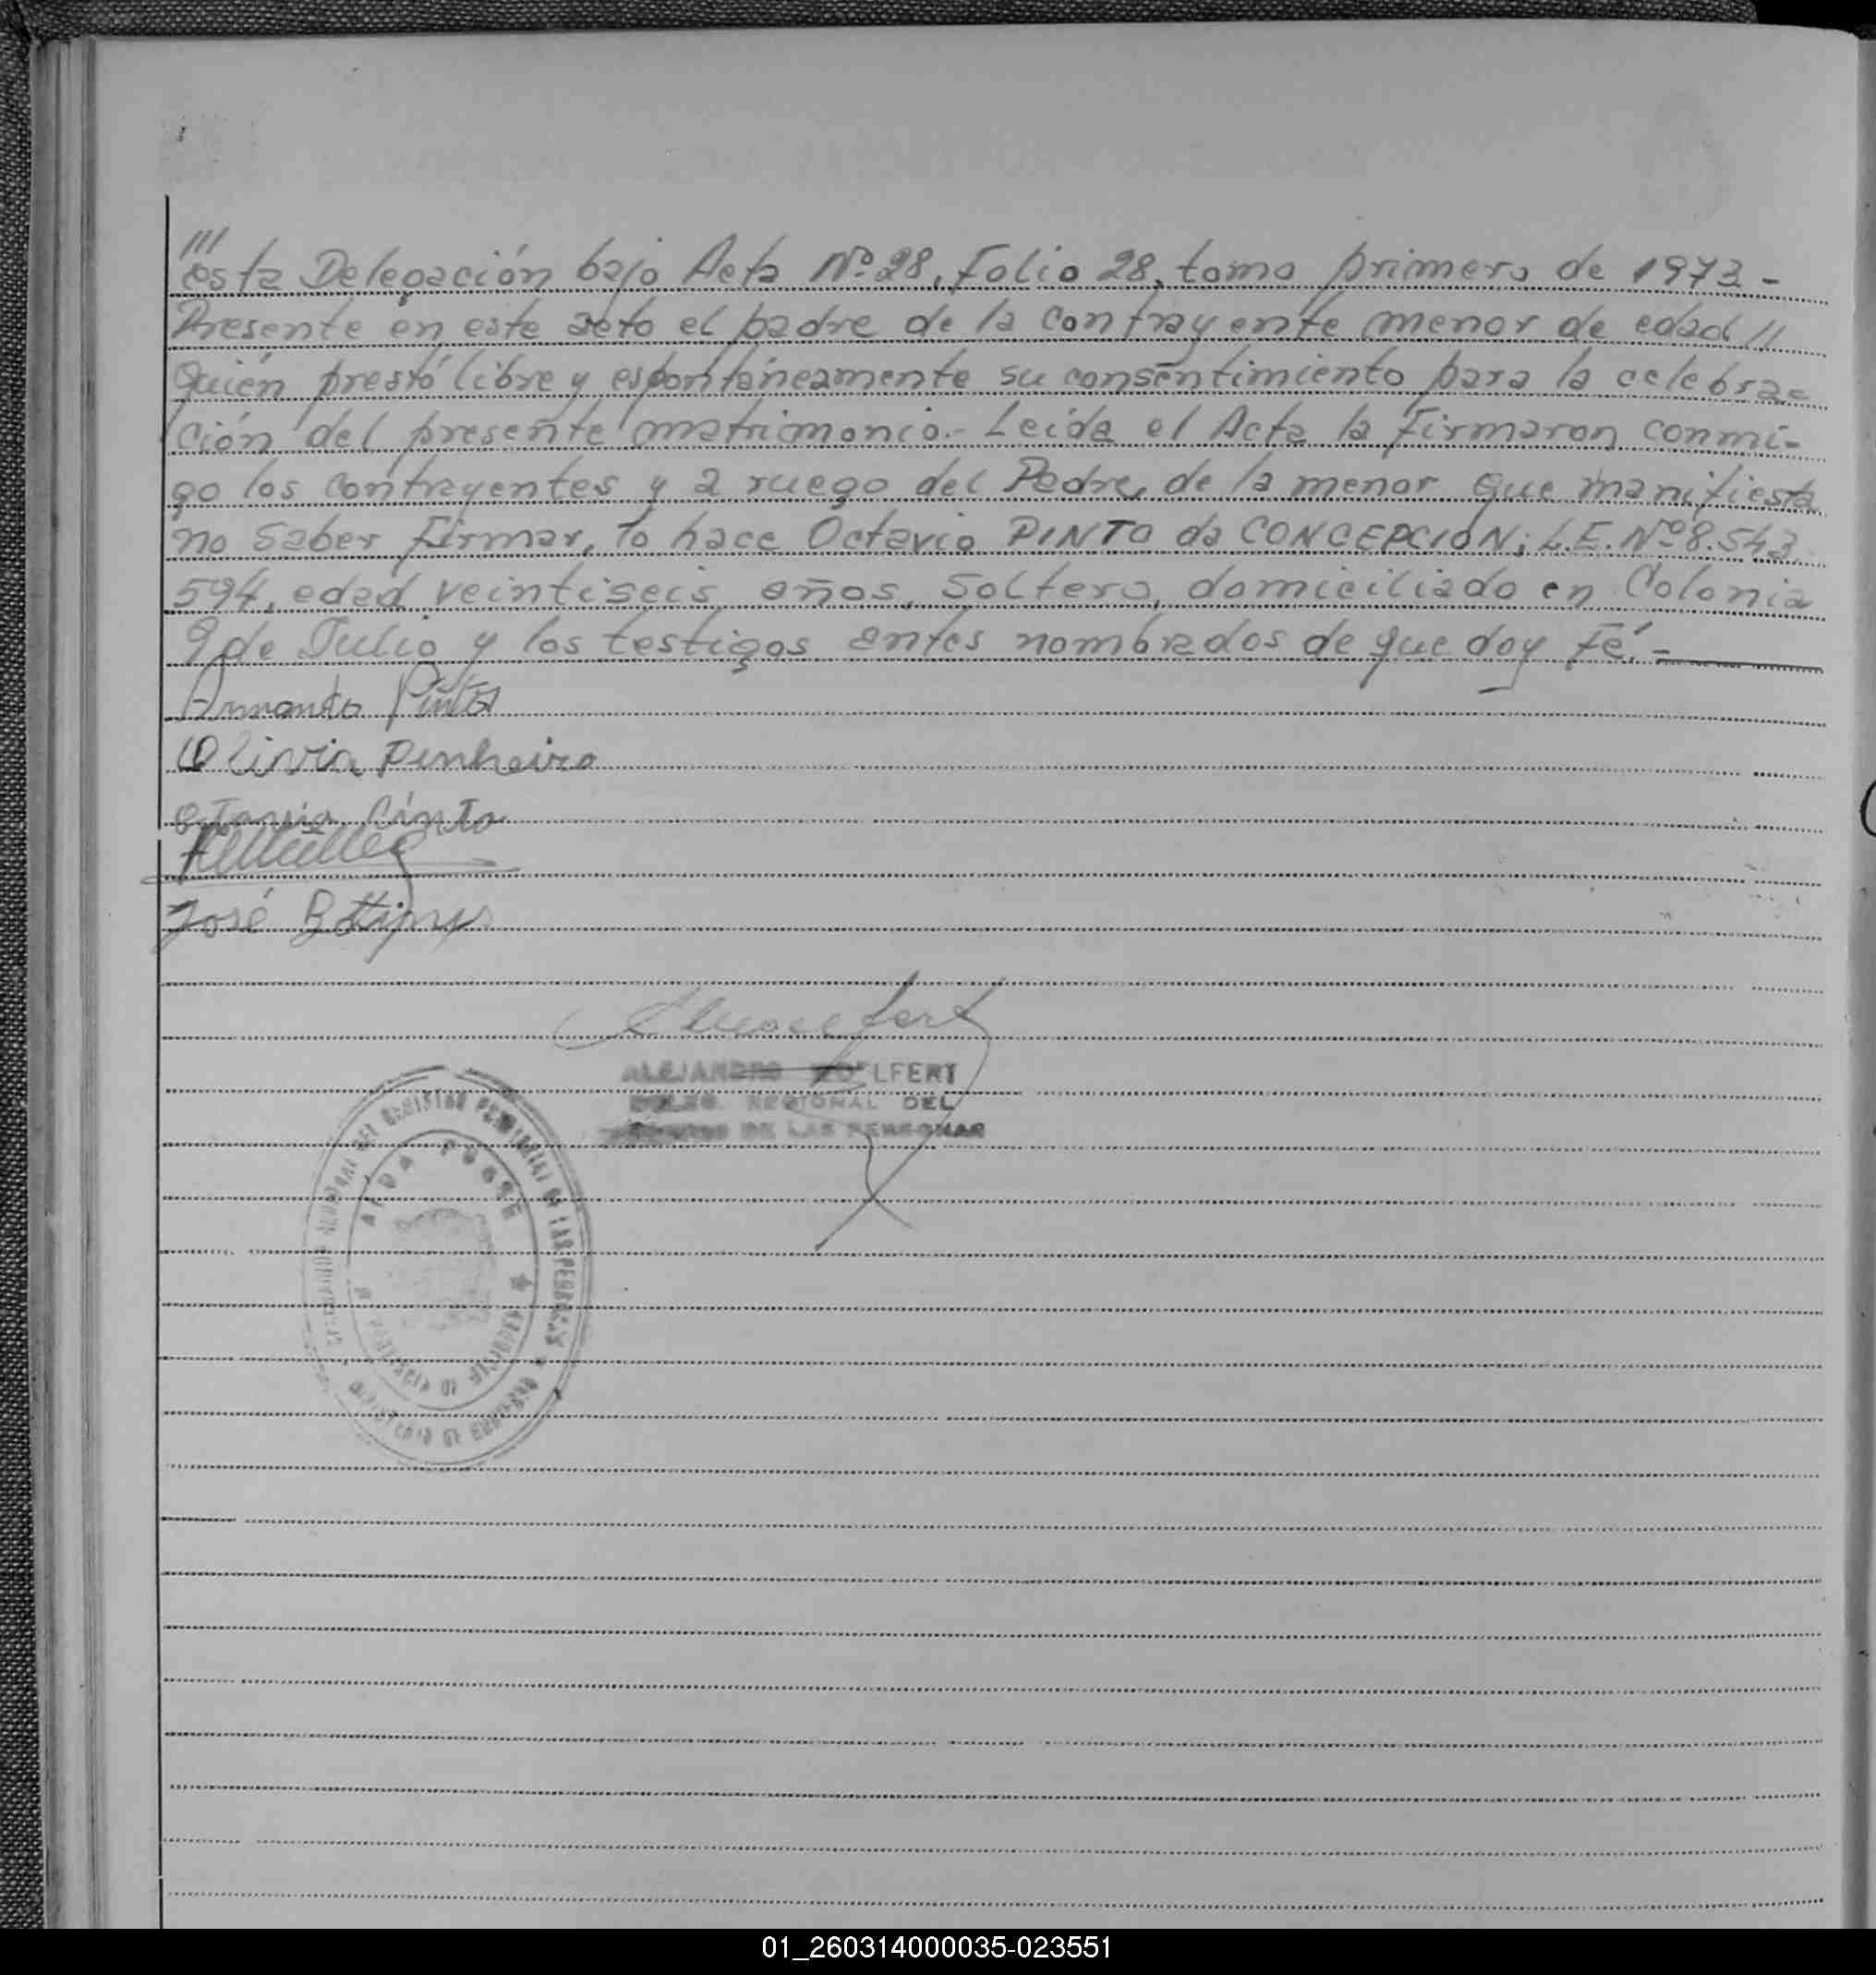 ///
esta Delegación bajo Acta Nº 28, Folio 28, tomo primero de 1973 -
Presente en este acto el padre de la contrayente menor de edad //
quién prestó libre y espontáneamente su consentimiento para la celebra=
ción del presente matrimonio.- Leida el Acta la Firmaron conmi-
go los contrayentes y a ruego del Padre, de la menor que manifiesta
no saber Firmar, lo hace Octavio PINTO da CONCEPCION; L.E. Nº 8.543.
594, edad veintiseis años, soltero, domiciliado en Colonia
9 de Julio y los testigos antes nombrados de que doy Fé.-
Armando Pinto
Olivia Pinheiro
Otavio Pinto
José
ALEJANDRO WOLFERT
DELEG. REGIONAL DEL
DE LAS PERSONAS
01_260314000035-023551